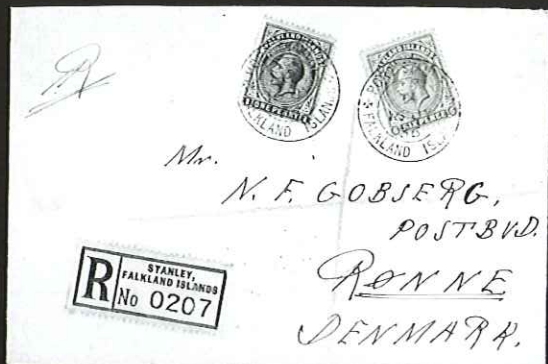 R
FALKLAND ISLANDS
ONE PENNY
FALKLAND ISLANDS
FALKLAND ISL
Mr.
N. F. GOBSERG,
POSTBVD.
RØNNE
DENMARK.
R
STANLEY,
FALKLAND ISLANDS
No 0207